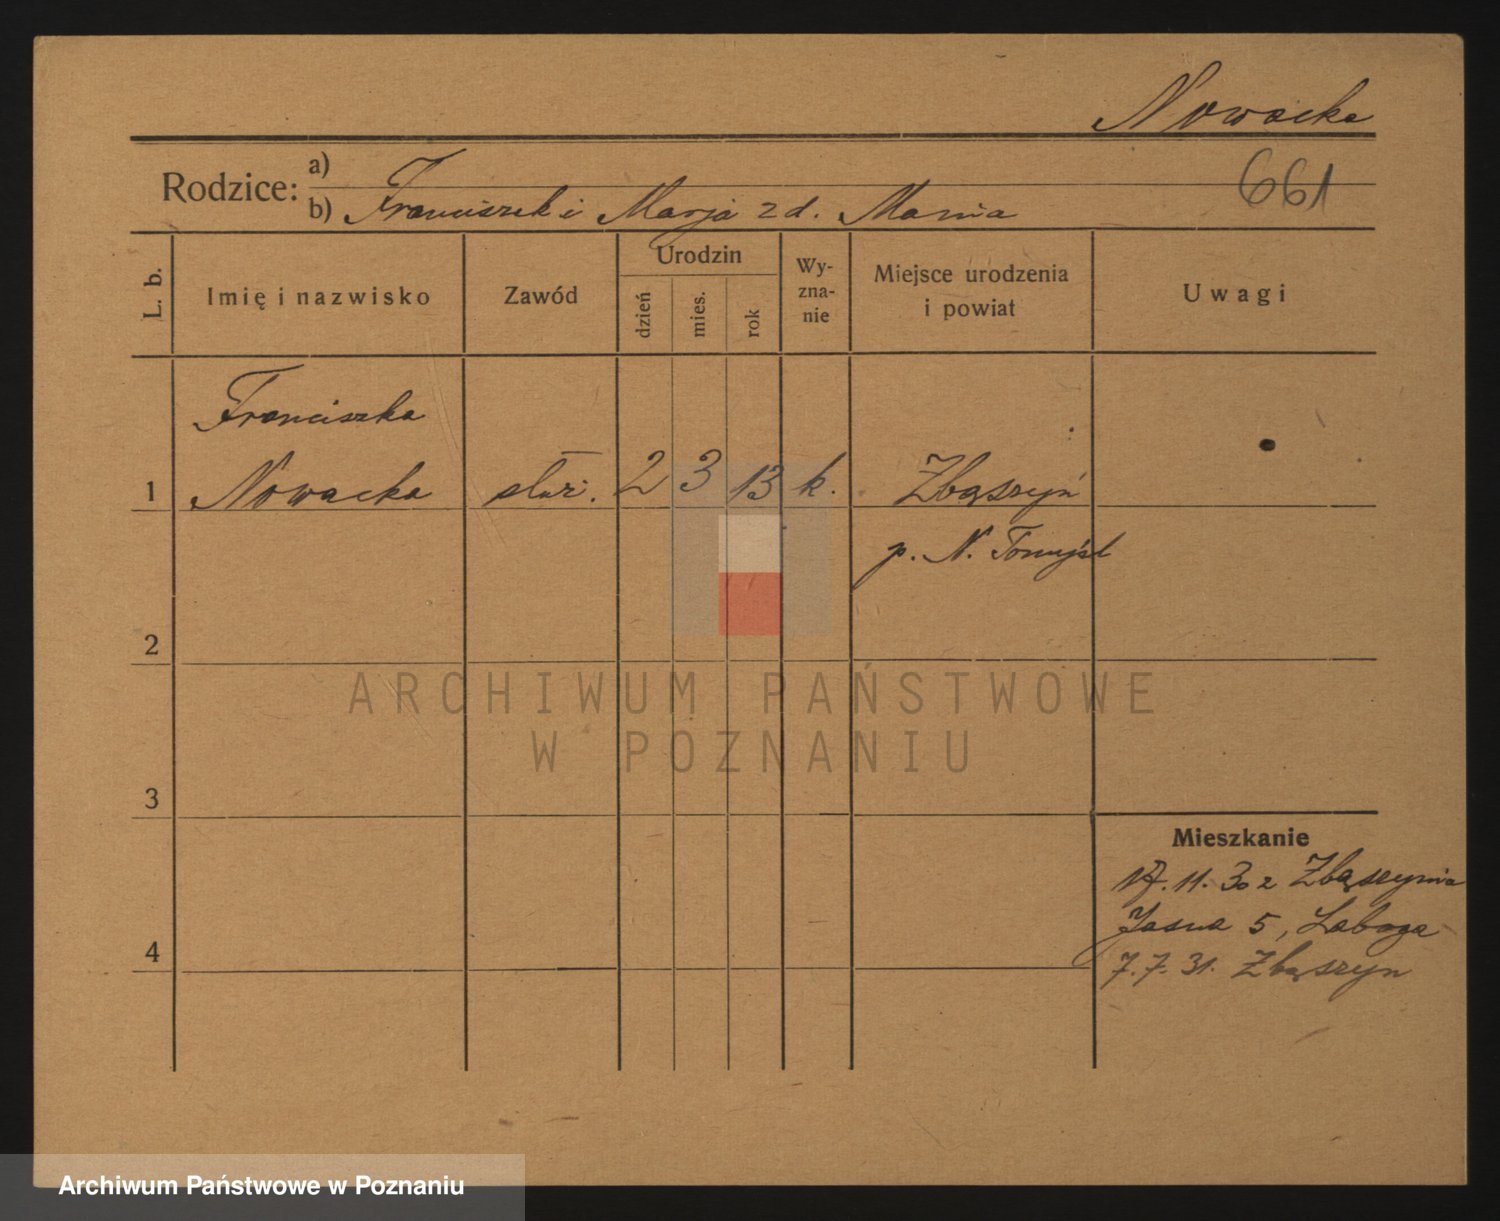 Nowacka
661
Rodzice:
a)
b) Franciszek i Marja z d. Mania
L. b.
Imię i nazwisko
Zawód
Urodzin
dzień
mies.
rok
Wy-
zna-
nie
Miejsce urodzenia
i powiat
Uwagi
Franciszka
1 Nowacka służ. 2 3 13 k. Zbąszyń
p. N. Tomyśl
2
ARCHIWUM PAŃSTWOWE
W POZNANIU
3
Mieszkanie
17. 11. 30 z Zbąszynia
Jasna 5, Laboga
4
7. 7. 31. Zbąszyn
Archiwum Państwowe w Poznaniu